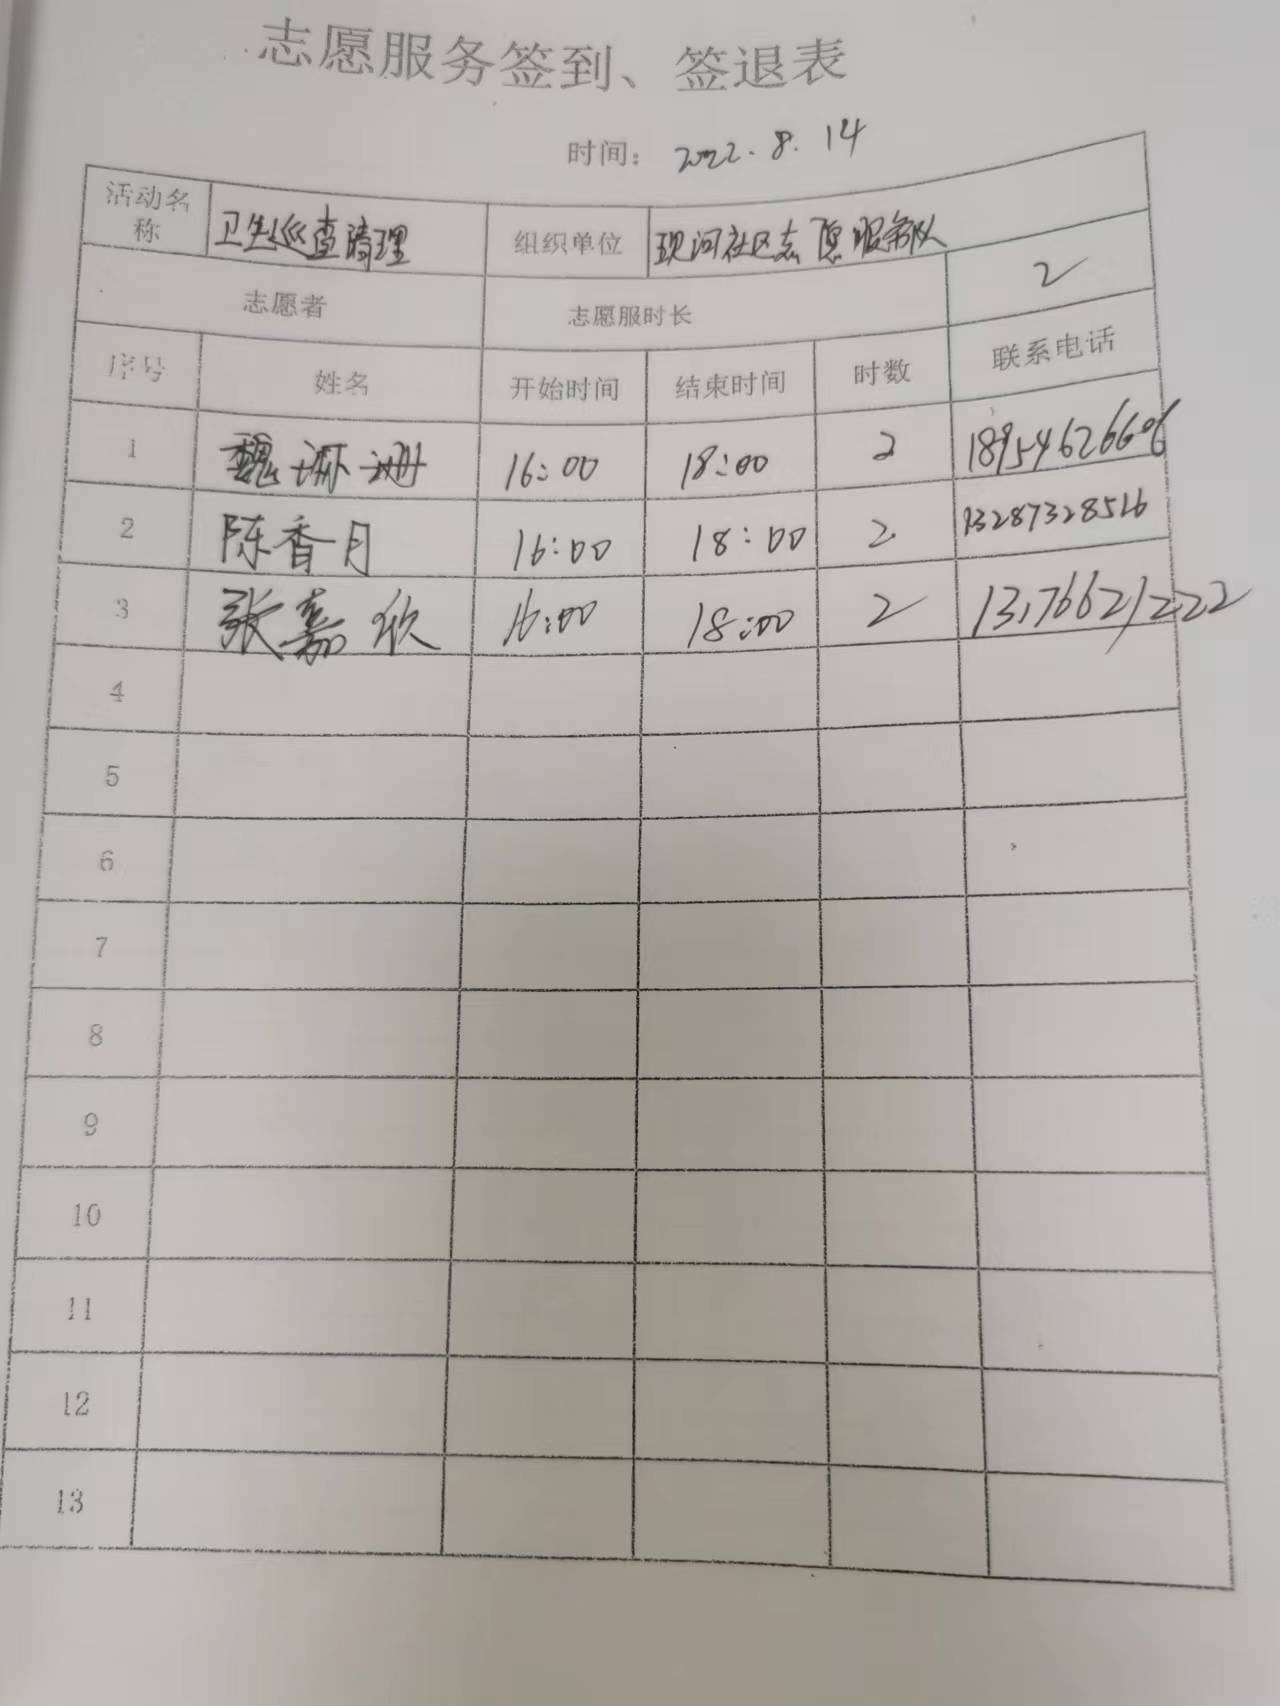 志愿服务签到、签退表
时间： 2022.8.14
活动名称 卫生巡查清理 组织单位 现河社区志愿服务队
志愿者 志愿服时长 2
序号 姓名 开始时间 结束时间 时数 联系电话
1 魏琳珊 16:00 18:00 2 18954626606
2 陈香月 16:00 18:00 2 13287328516
3 张嘉欣 16:00 18:00 2
4
5
6
7
8
9
10
11
12
13